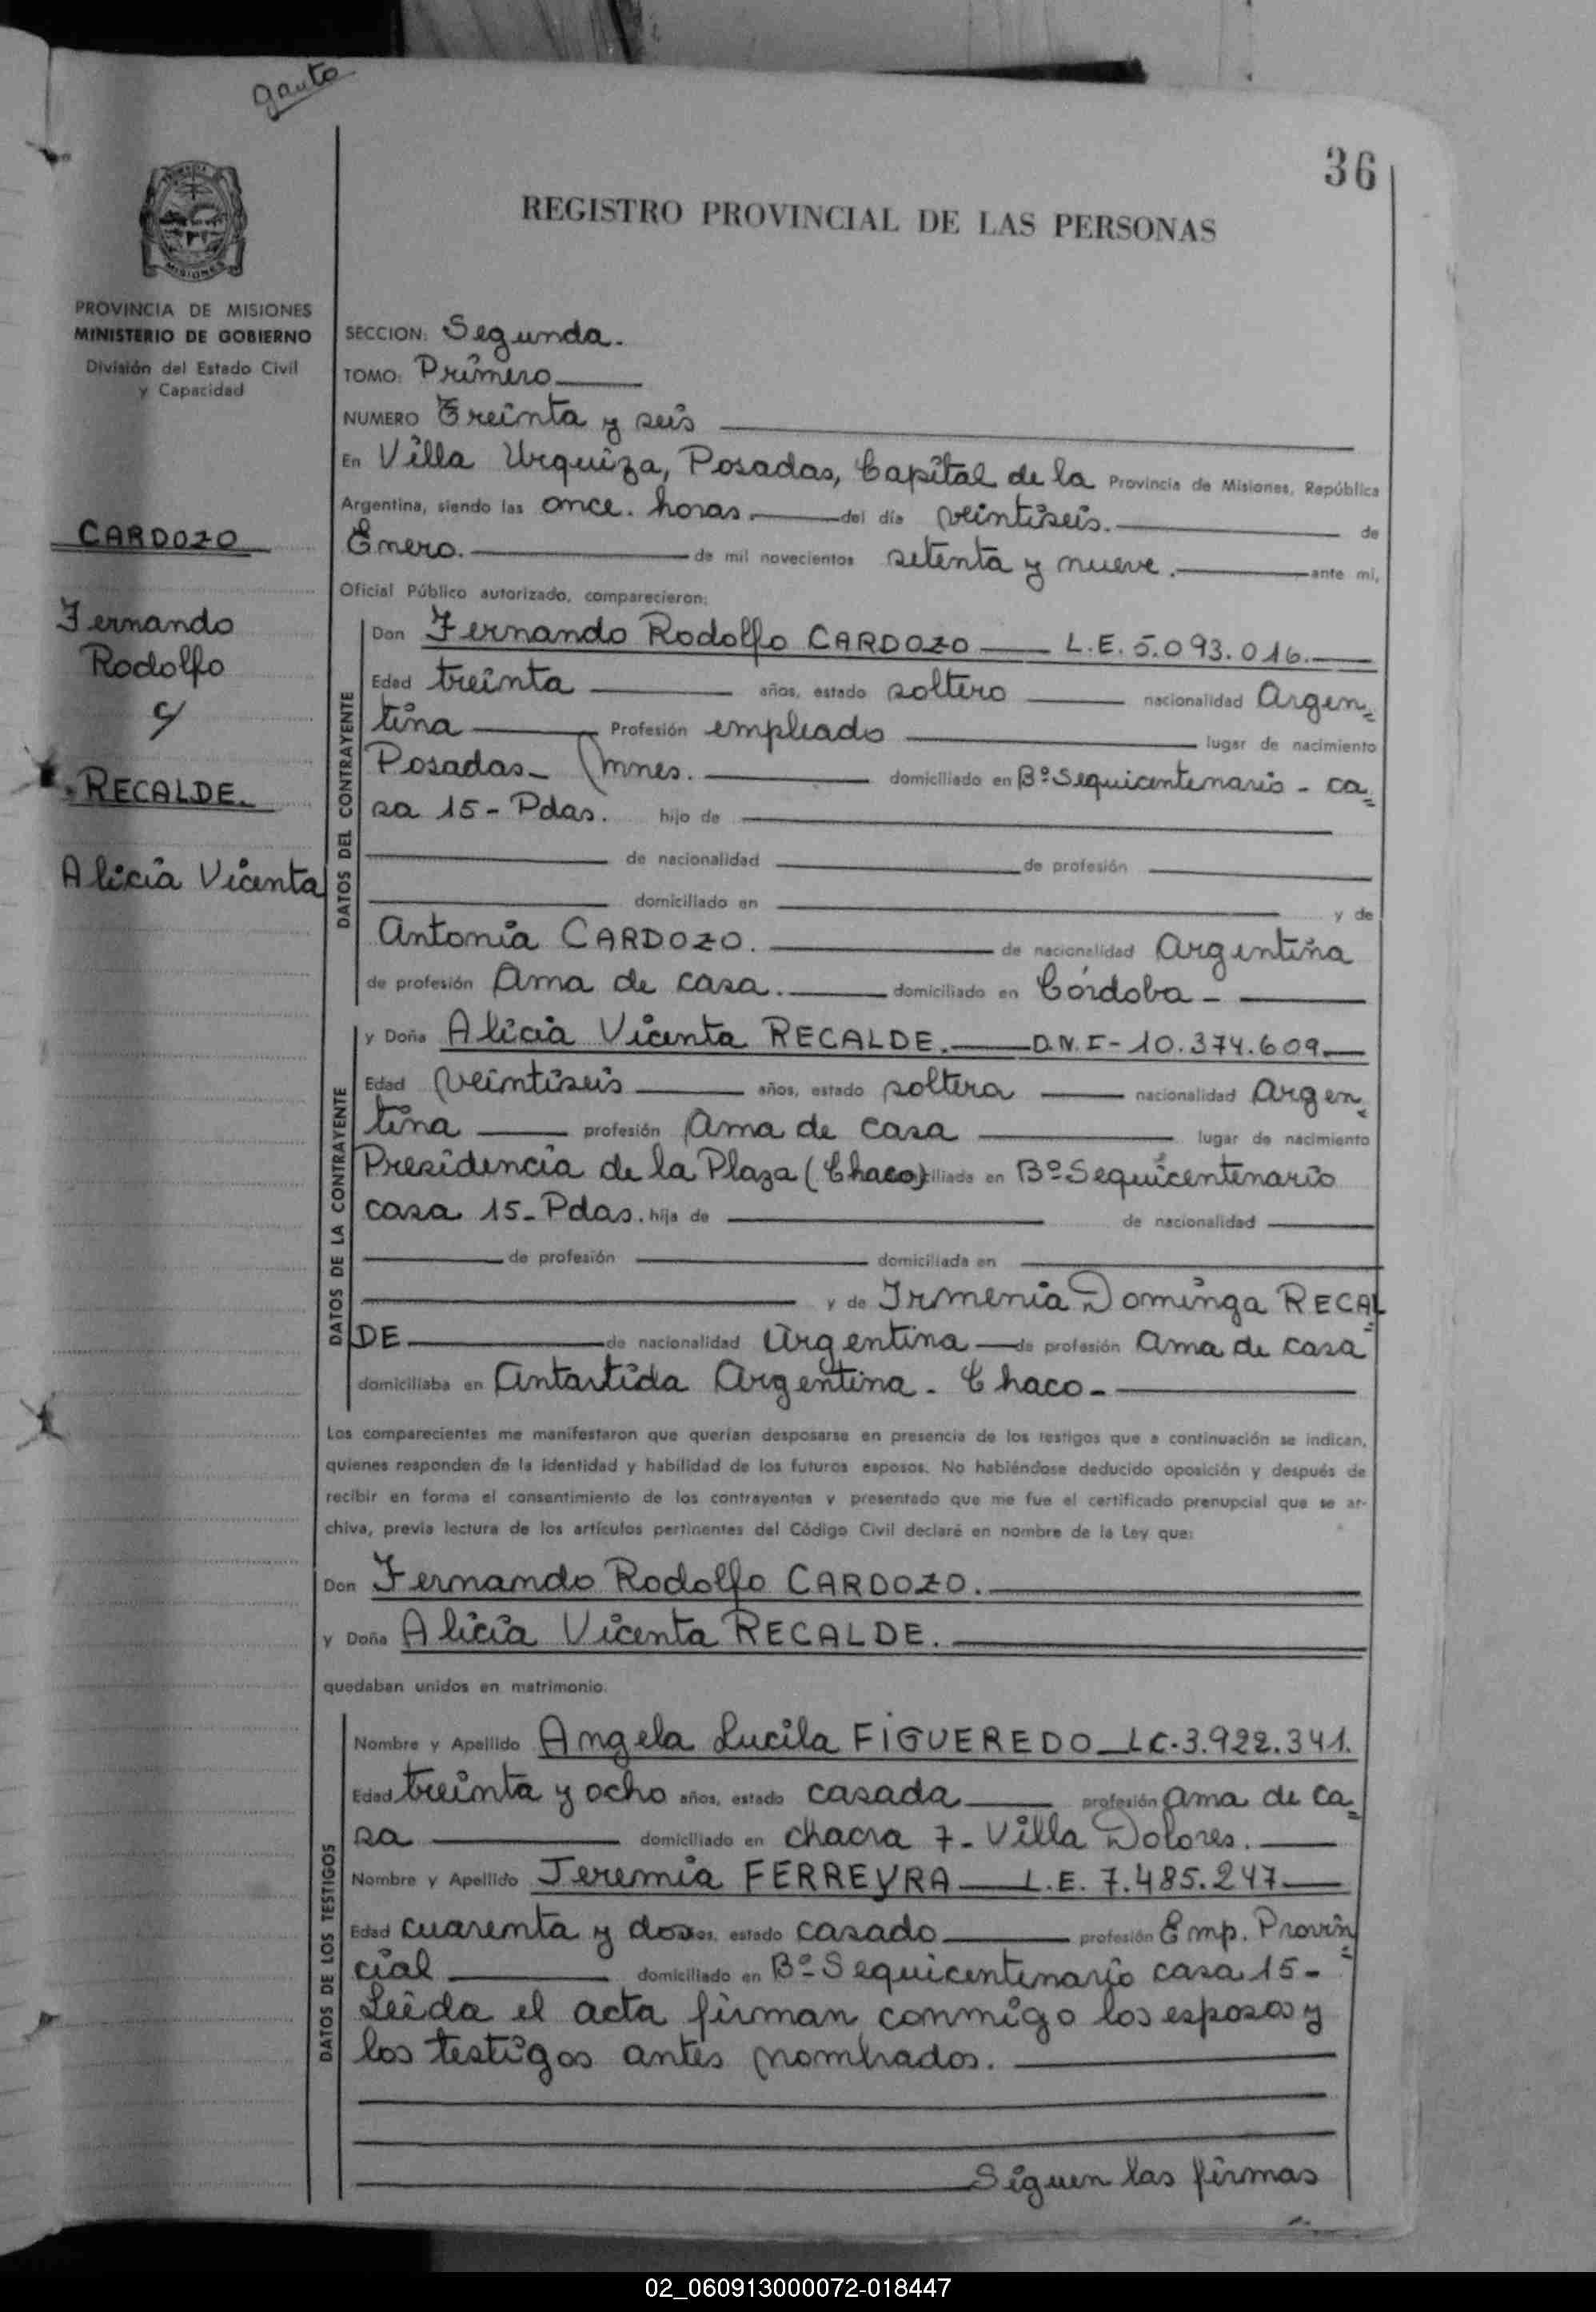 gauto
36
REGISTRO PROVINCIAL DE LAS PERSONAS
MISIONES
PROVINCIA DE MISIONES
MINISTERIO DE GOBIERNO
División del Estado Civil
y Capacidad
CARDOZO
Fernando
Rodolfo
c/
RECALDE.
Alicia Vicenta
SECCION: Segunda.
TOMO: Primero
NUMERO Treinta y seis
En Villa Urquiza, Posadas, Capital de la Provincia de Misiones, República
Argentina, siendo las once. horas. del día veintiseis. de
Enero. de mil novecientos setenta y nueve. ante mí,
Oficial Público autorizado, comparecieron:
DATOS DEL CONTRAYENTE
Don Fernando Rodolfo CARDOZO L.E. 5.093.016.
Edad treinta años, estado soltero nacionalidad Argen=
tina Profesión empleado lugar de nacimiento
Posadas- (Mnes. domiciliado en Bº Sequicentenario - ca=
sa 15- Pdas. hijo de
de nacionalidad de profesión
domiciliado en y de
Antonia CARDOZO. de nacionalidad Argentina
de profesión Ama de casa. domiciliado en Córdoba-
DATOS DE LA CONTRAYENTE
y Doña Alicia Vicenta RECALDE. D.N.I- 10.374.609
Edad Veintiseis años, estado soltera nacionalidad Argen=
tina profesión Ama de casa lugar de nacimiento
Presidencia de la Plaza (Chaco) ciliada en Bº Sequicentenario
casa 15- Pdas. hija de de nacionalidad
de profesión domiciliada en
y de Irmenia Dominga RECAL
DE de nacionalidad Argentina de profesión Ama de casa
domiciliaba en Antartida Argentina - Chaco-
Los comparecientes me manifestaron que querían desposarse en presencia de los testigos que a continuación se indican,
quienes responden de la identidad y habilidad de los futuros esposos. No habiéndose deducido oposición y después de
recibir en forma el consentimiento de los contrayentes y presentado que me fue el certificado prenupcial que se ar-
chiva, previa lectura de los artículos pertinentes del Código Civil declaré en nombre de la Ley que:
Don Fernando Rodolfo CARDOZO.
y Doña Alicia Vicenta RECALDE.
quedaban unidos en matrimonio.
DATOS DE LOS TESTIGOS
Nombre y Apellido Angela Lucila FIGUEREDO LC.3.922.341.
Edad treinta y ocho años, estado casada profesión ama de ca=
sa domiciliado en chacra 7- Villa Dolores.
Nombre y Apellido Jeremia FERREYRA L.E. 7.485.247
Edad cuarenta y dos os, estado casado profesión Emp. Provin=
cial domiciliado en Bº Sequicentenario casa 15-
Leida el acta firman conmigo los esposos y
los testigos antes nombrados.
Siguen las firmas
02_060913000072-018447